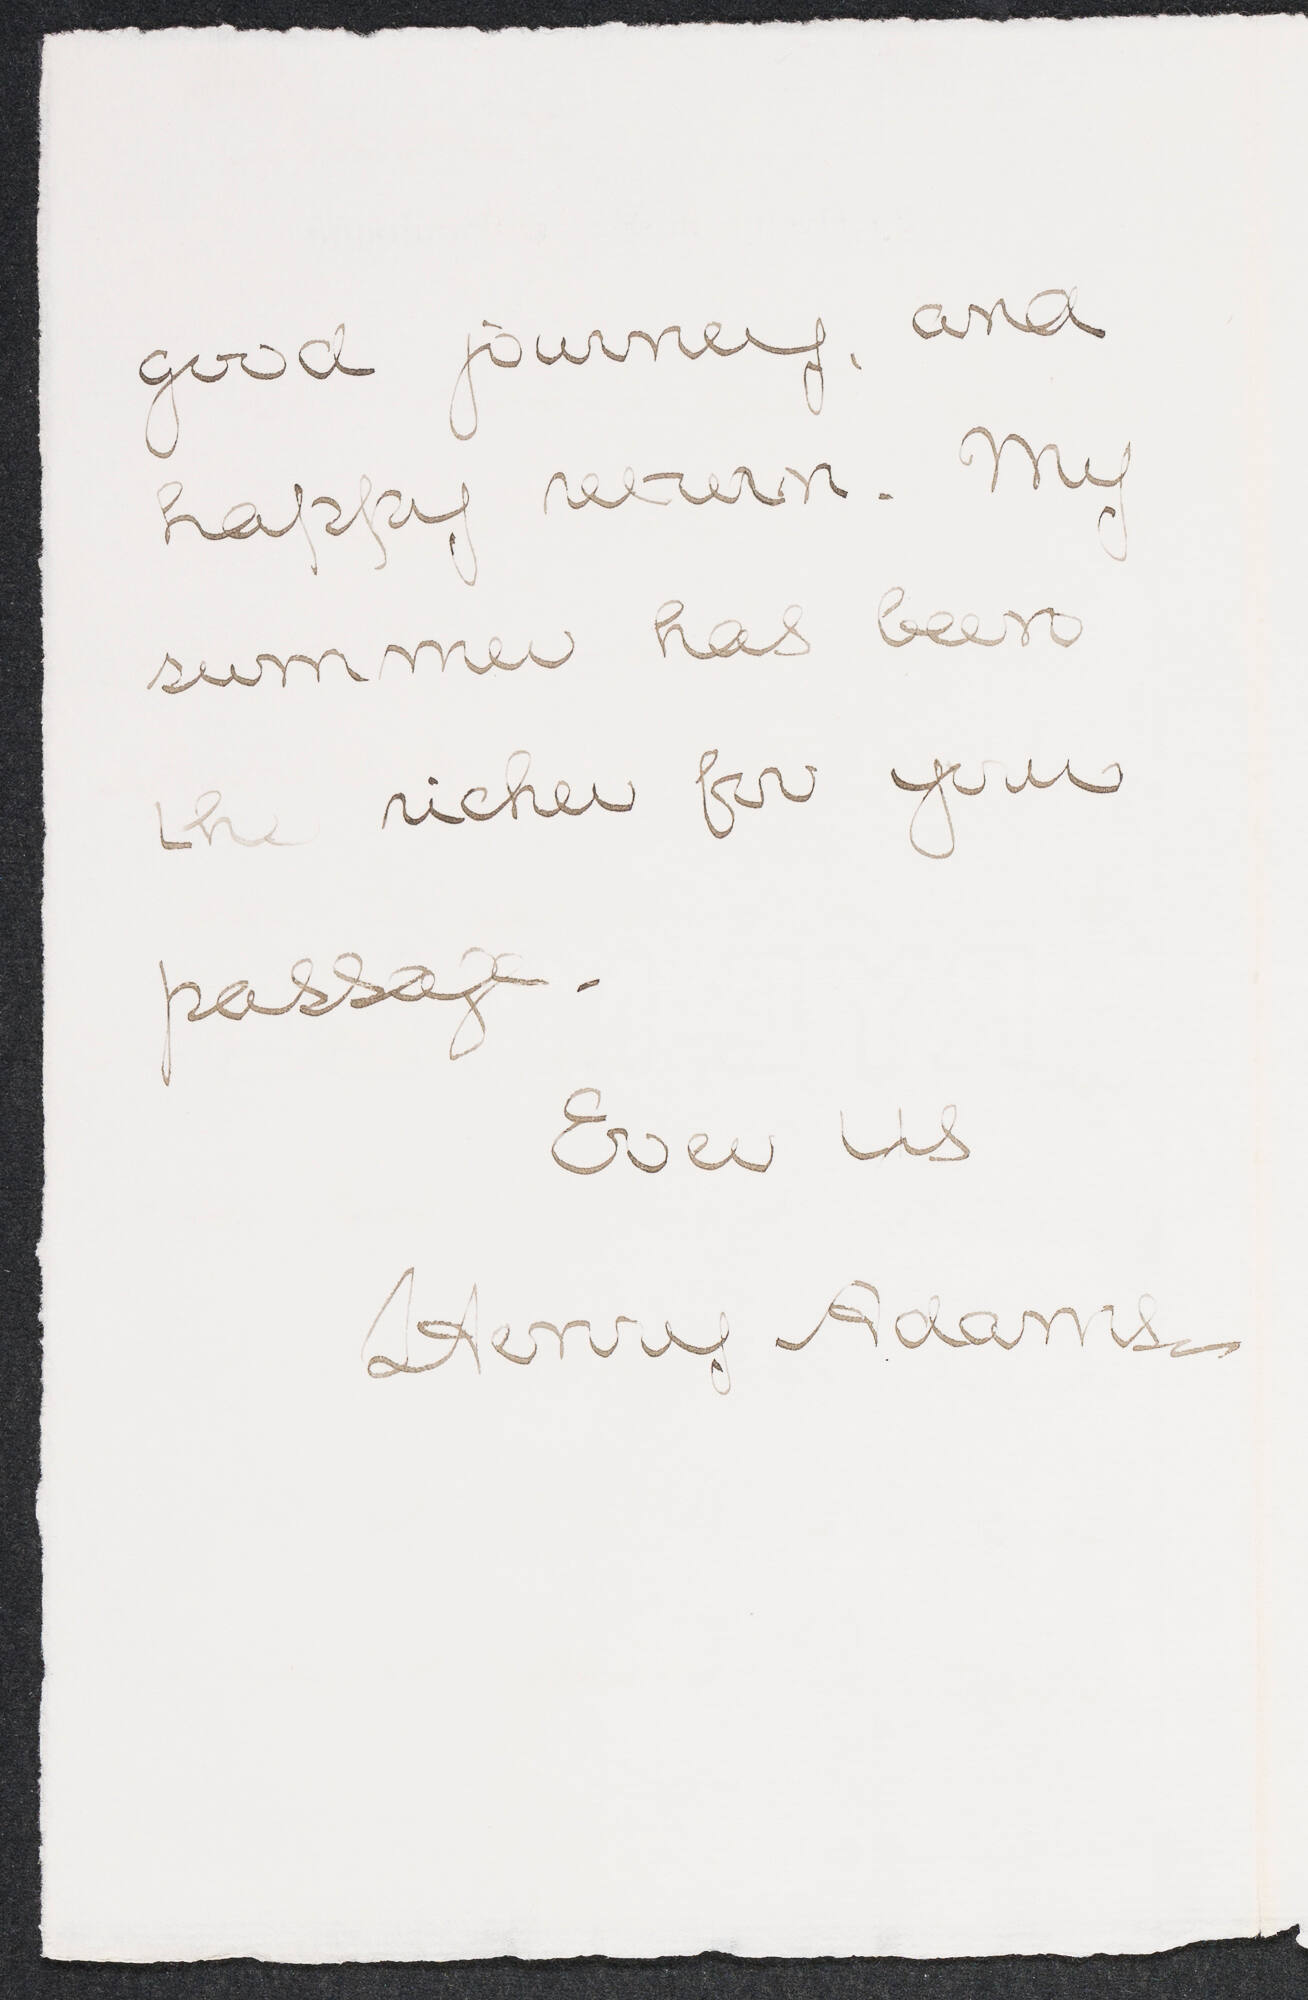 good journey, and
happy return. My
summer has been
the richer for your
passage.
Ever
Henry Adams